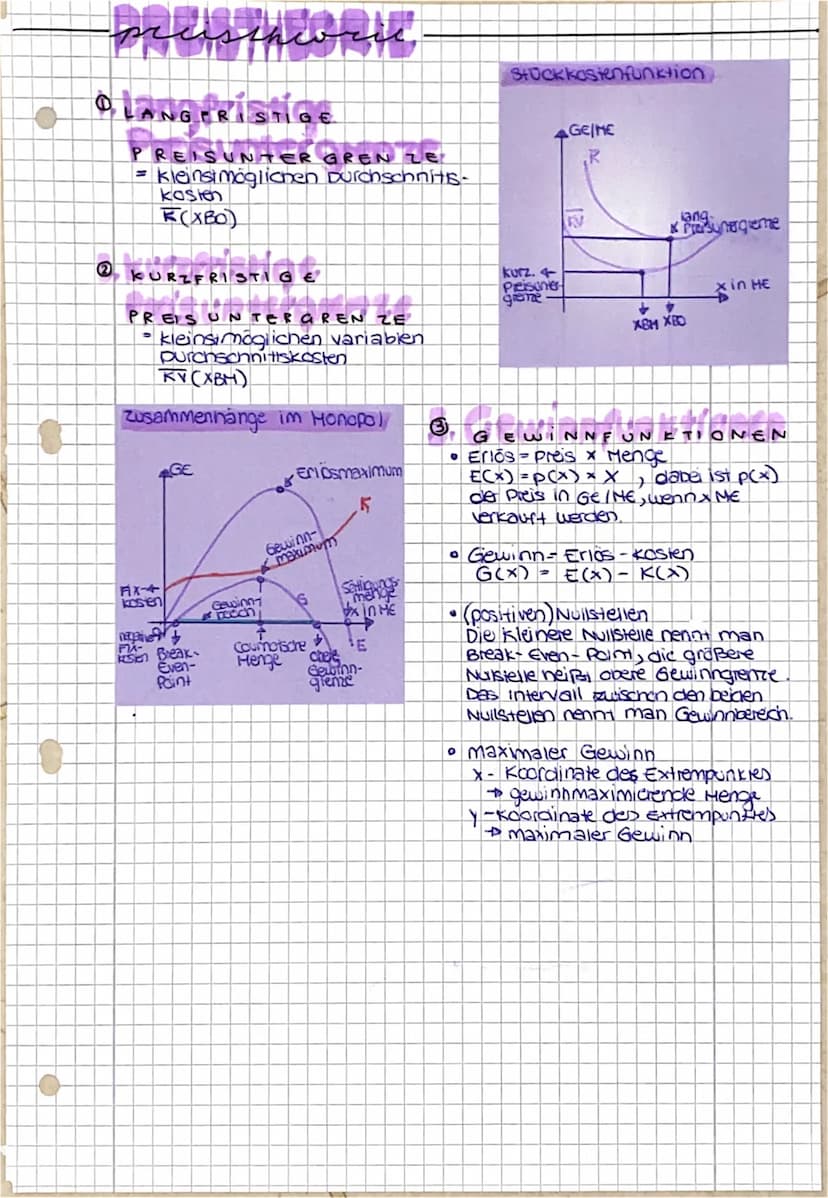 PREISTHEORIE
preistheorie
① LANGFRISTIGE
PREISUNTERGRENZE
= kleinstmöglichen Durchschnitts-
kosten
k̅(XBO)
② KURZFRISTIGE
PREISUNTERGRENZE
= kleinstmöglichen variablen
Durchschnittskosten
k̅v̅(XBM)
Stückkostenfunktion
GE/ME
k̅
k̅v̅
lang.
Preisunergrenze
kurz.
Preisuner-
grenze
x in ME
XBM XBO
Zusammenhänge im Monopol
GE
Erlösmaximum
K
Gewinn-
maximum
Fix-
kosten
Gewinn-
G
Sättigungs-
menge
x in ME
negative
Fix-
kosten
Break-
Even-
Point
Cournotsche
Menge
obere
Gewinn-
grenze
E
3. Gewinnfunktionen
③ GEWINNFUNKTIONEN
• Erlös = Preis × Menge
E(x) = p(x) × x , dabei ist p(x)
der Preis in GE/ME, wenn x ME
verkauft werden.
• Gewinn = Erlös - Kosten
G(x) = E(x) - K(x)
• (positiven) Nullstellen
Die kleinere Nullstelle nennt man
Break-Even-Point, die größere
Nullstelle heißt obere Gewinngrenze.
Das Intervall zwischen den beiden
Nullstellen nennt man Gewinnbereich.
• maximaler Gewinn
x- Koordinate des Extrempunktes
→ gewinnmaximierende Menge
y-Koordinate des Extrempunktes
→ maximaler Gewinn